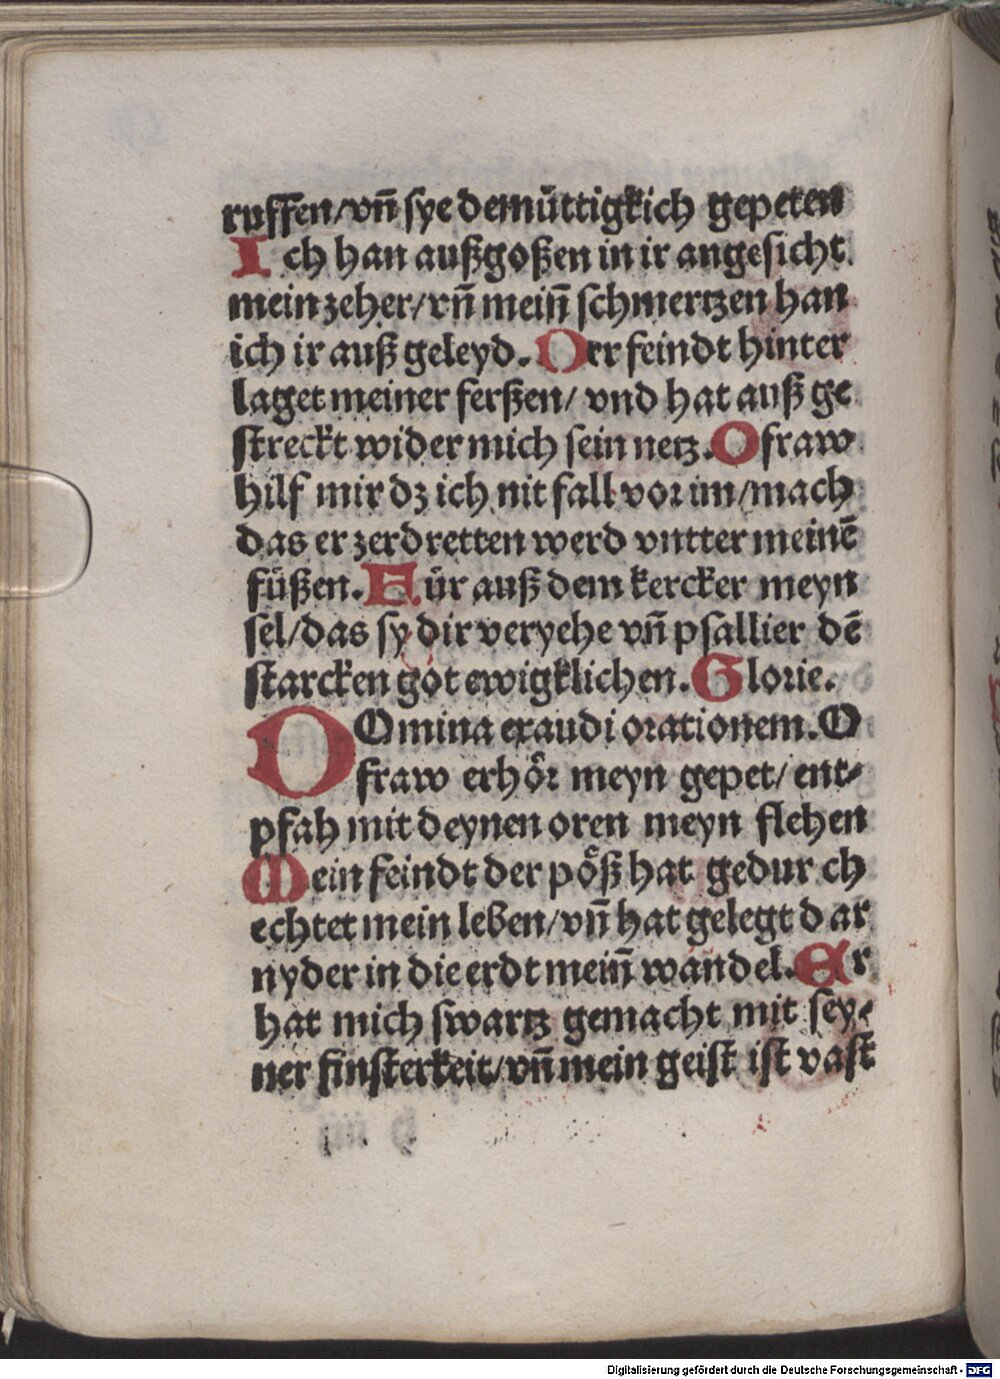 ruffen/vn̄ sye demüttigkich gepeten
Ich han außgoßen in ir angesicht
mein zeher/vn̄ mein̄ schmertzen han
ich ir auß geleyd. Der feindt hinter
laget meiner ferßen/ vnd hat auß ge
streckt wider mich sein netz. O fraw
hilf mir dz ich nit fall vor im/mach
das er zerdretten werd vntter meinē
füßen. Für auß dem kercker meyn
sel/das sy dir veryehe vn̄ psallier dē
starcken got ewigklichen. Glorie.
DOmina exaudi orationem. O
fraw erhoͤr meyn gepet/ ent-
pfah mit deynen oren meyn flehen
Mein feindt der poͤß hat gedur ch
echtet mein leben/vn̄ hat gelegt d ar
nyder in die erdt mein̄ wandel. Er
hat mich swartz gemacht mit sey-
ner finsterkeit/vn̄ mein geist ist vast
Digitalisierung gefördert durch die Deutsche Forschungsgemeinschaft - DFG